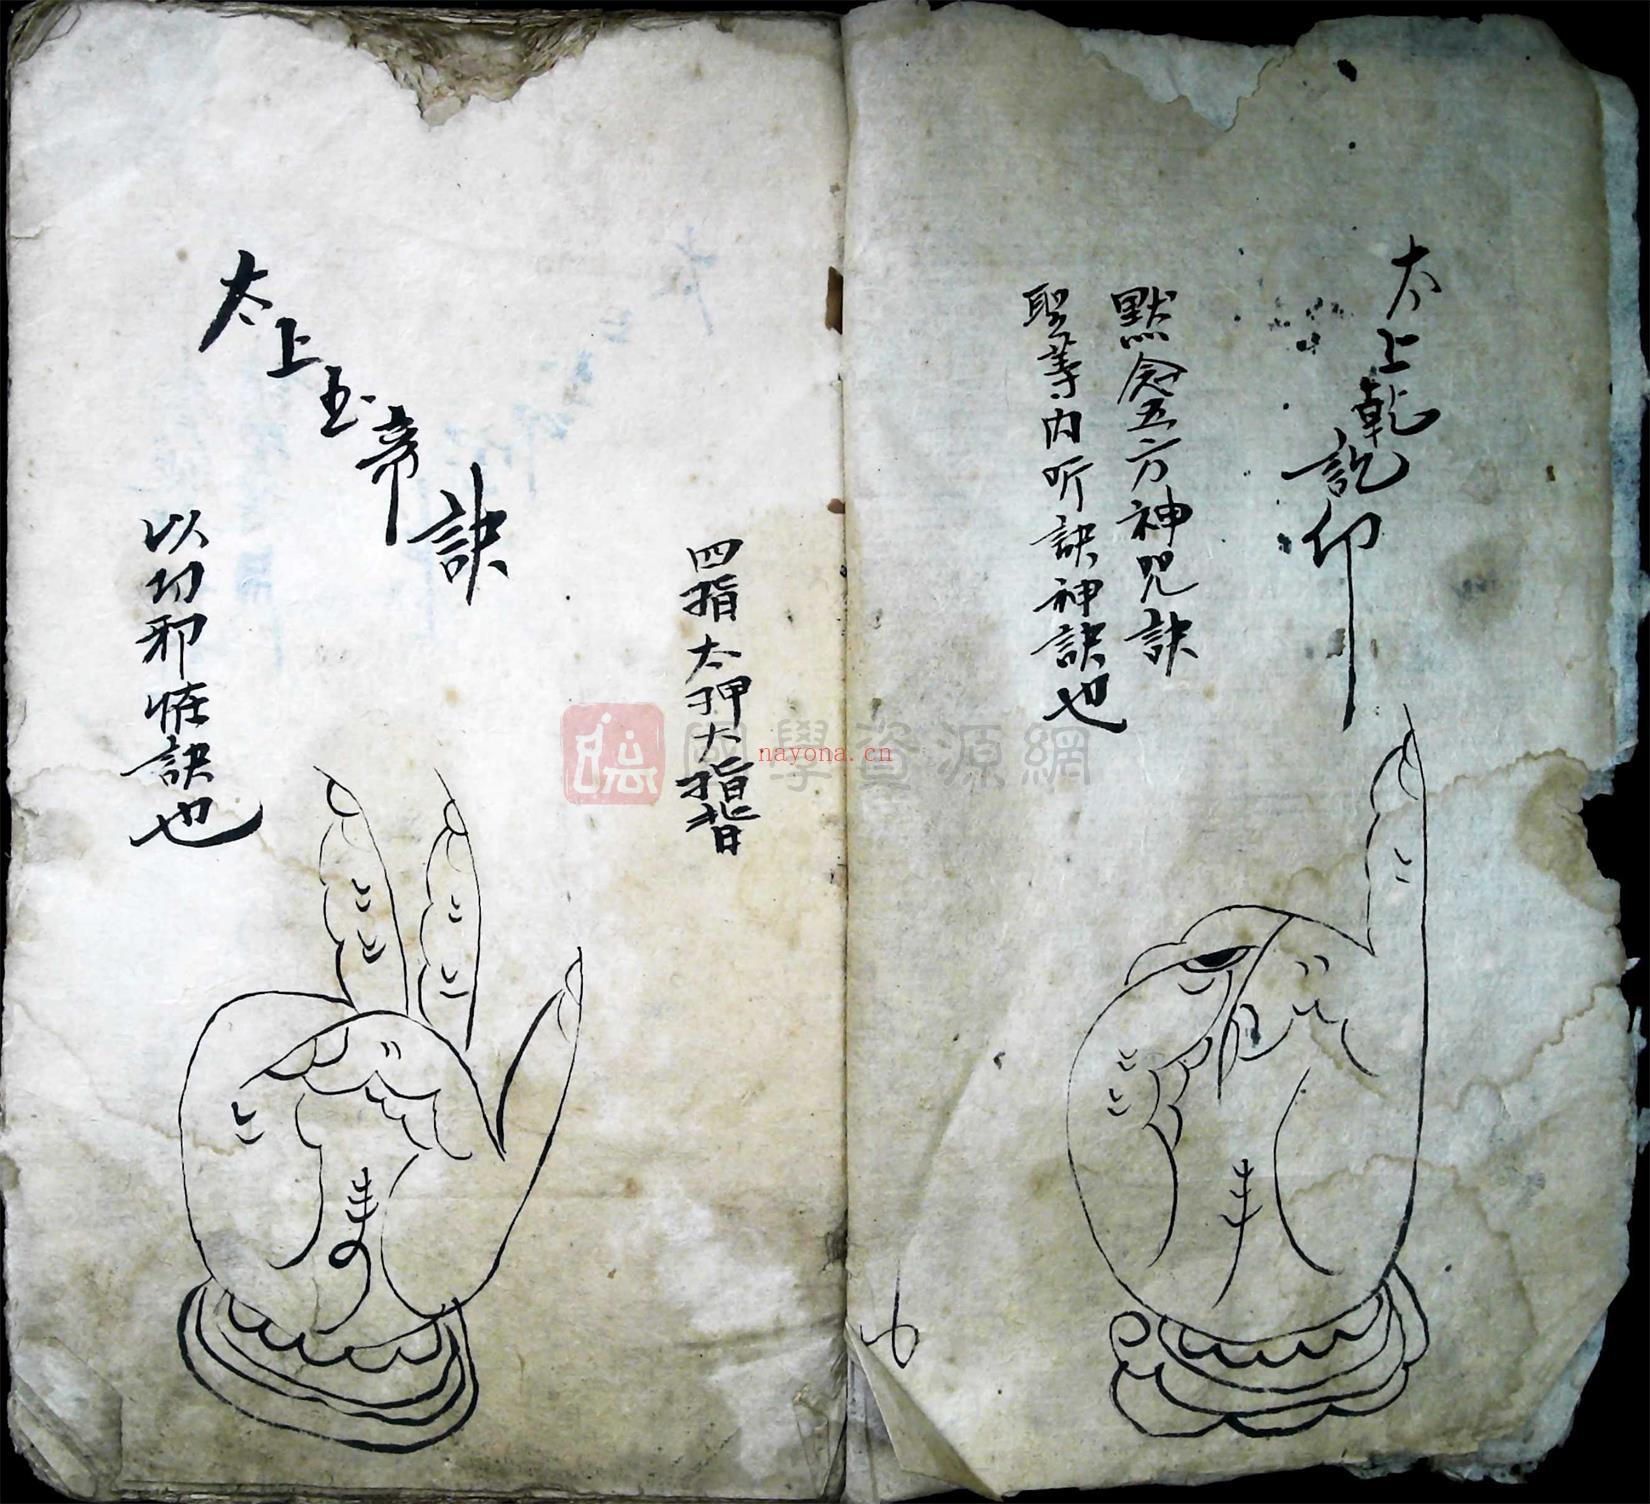 太上乾訖印
默念五方神咒訣
聖等內听訣神訣也
四指太押大指背
太上玉帝訣
以切邪恠訣也
國學資源網
nayona.cn